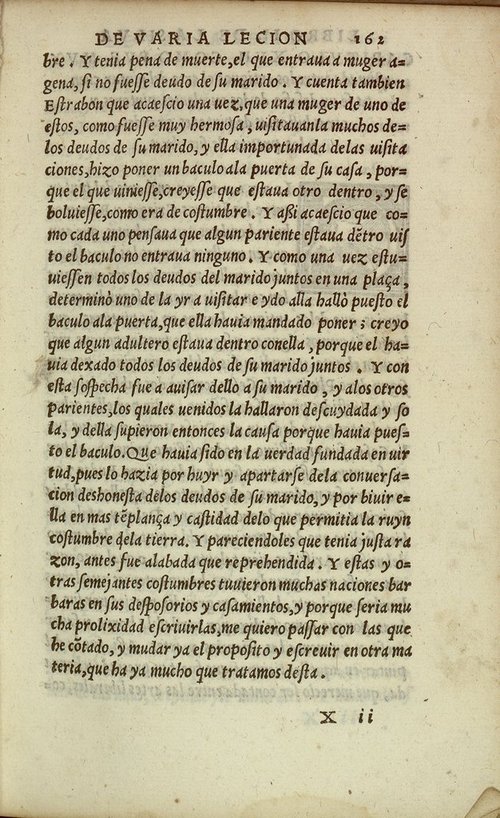 DE VARIA LECION 162
bre. Y tenia pena de muerte, el que entraua a muger a-
gena, si no fuesse deudo de su marido. Y cuenta tambien
Estrabon que acaescio una vez, que una muger de uno de
estos, como fuesse muy hermosa, uisitauanla muchos de-
los deudos de su marido, y ella importunada delas uisita
ciones, hizo poner un baculo ala puerta de su casa, por-
que el que uiniesse, creyesse que estaua otro dentro, y se
boluiesse, como era de costumbre. Y aßi acaescio que co-
mo cada uno pensaua que algun pariente estaua dẽtro uis
to el baculo no entraua ninguno. Y como una uez estu-
uiessen todos los deudos del marido juntos en una plaça,
determinò uno de la yr a uisitar e ydo alla hallò puesto el
baculo ala puerta, que ella hauia mandado poner; creyo
que algun adultero estaua dentro conella, porque el ha-
uia dexado todos los deudos de su marido juntos. Y con
esta sospecha fue a auisar dello a su marido, y alos otros
parientes, los quales uenidos la hallaron descuydada y so
la, y della supieron entonces la causa porque hauia pues-
to el baculo. Que hauia sido en la uerdad fundada en uir
tud, pues lo hazia por huyr y apartarse dela conuersa-
cion deshonesta delos deudos de su marido, y por biuir e-
lla en mas tẽplança y castidad delo que permitia la ruyn
costumbre dela tierra. Y pareciendoles que tenia justa ra
zon, antes fue alabada que reprehendida. Y estas y o-
tras semejantes costumbres tuuieron muchas naciones bar
baras en sus desposorios y casamientos, y porque seria mu
cha prolixidad escriuirlas, me quiero passar con las que
he cõtado, y mudar ya el proposito y escreuir en otra ma
teria, que ha ya mucho que tratamos desta.
X ii